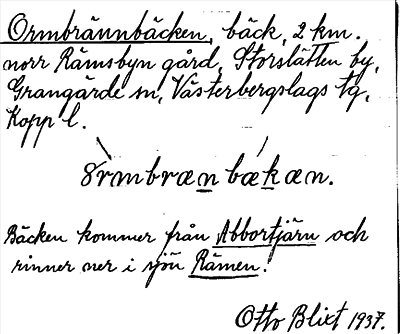 Ormbrännbäcken, bäck, 2 km.
norr Rämsbyn gård, Storslätten by,
Grangärde sn, Västerbergslags tg,
Kopp l.
ormbræn bækæn.
Bäcken kommer från Abbortjärn och
rinner ner i sjön Rämen.
Otto Blixt 1937.